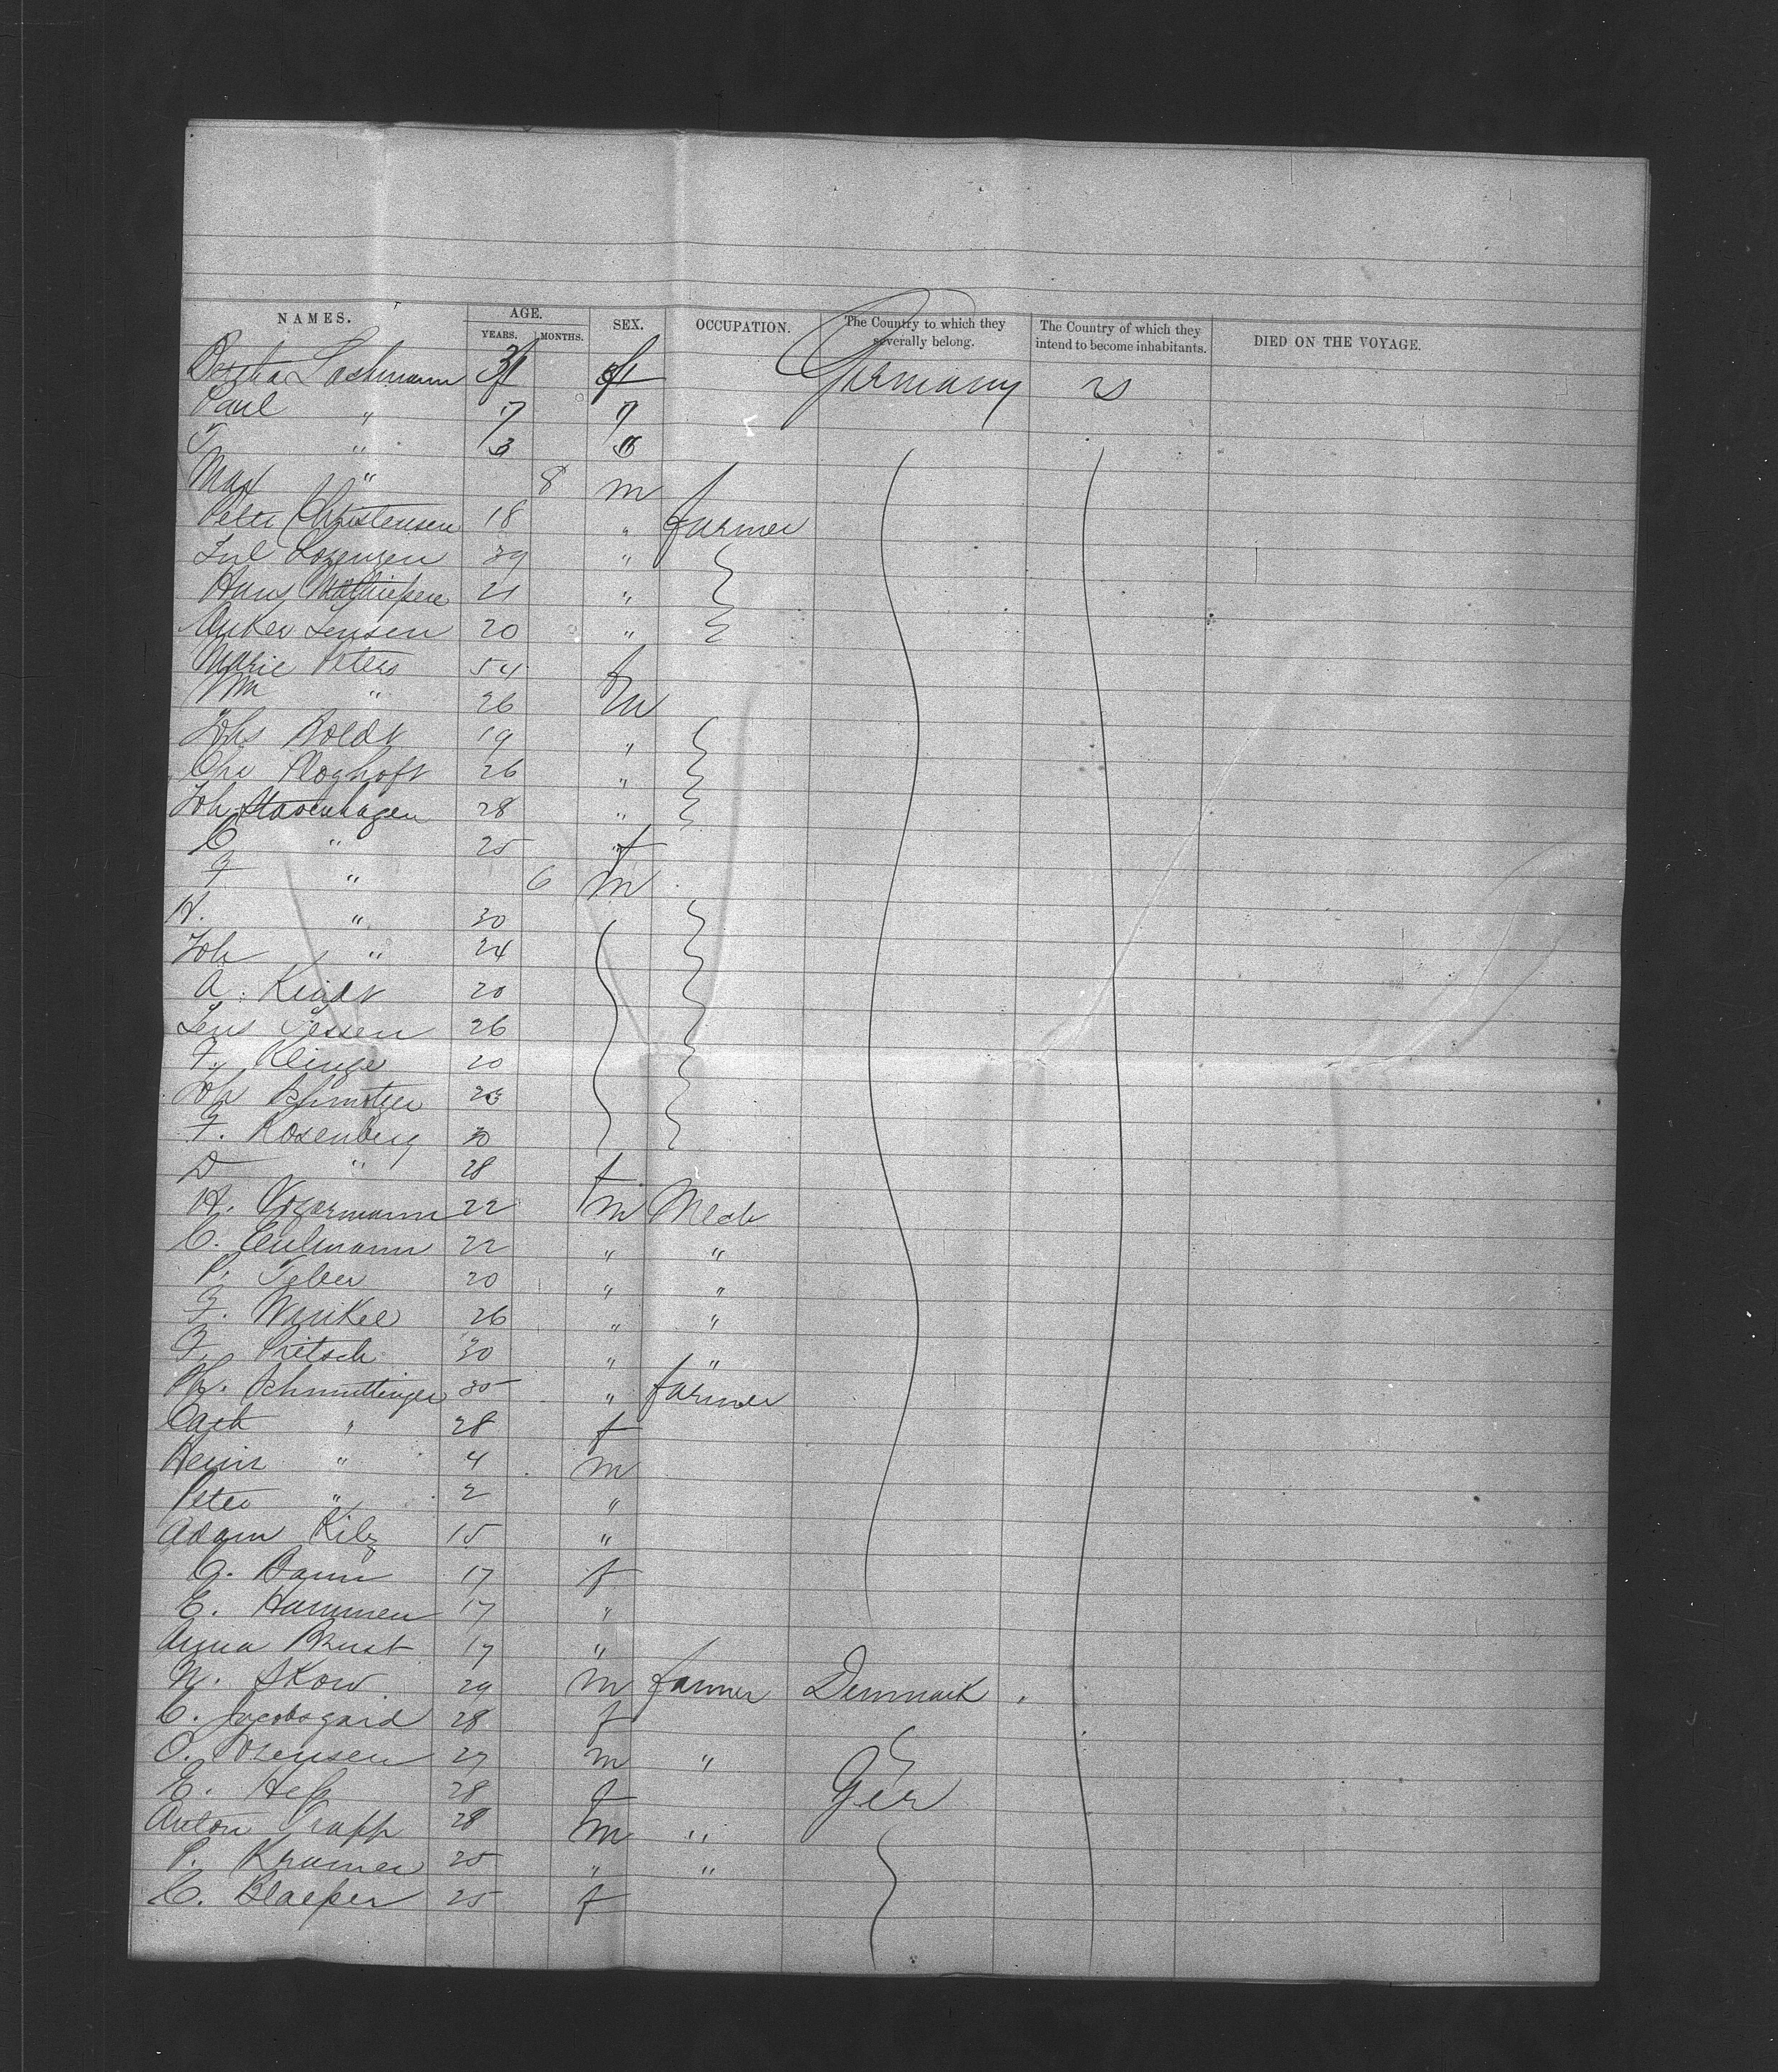 NAMES. AGE. SEX. OCCUPATION. The Country to which they severally belong. The Country of which they intend to become inhabitants. DIED ON THE VOYAGE.
YEARS. MONTHS.
Bertha Lachmann Germany
Paul "
"
Max " 8 m
Peter Christensen 18 " farmer
Lorenzen 39 "
Hans Mathiesen 21 "
Anker Jensen 20 "
Marie Peters 54 f
Wm " 26 m
Johs Boldt 19 "
Chr Ploghoft 26 "
Joh Stavenhagen 28 "
C " 25 f
F " 6 m
H. " 30
Joh " 24
A. Keidt 20
Jens Jessen 26
F. Klinge 20
Joh 23
F. Rosenberg 30
D " 28 f
H. 22 m Mech
C. 22 " "
P. 20 " "
F. Winkel 26 " "
F. Pietsch 30 " "
Ph. Schmittinger 30 " farmer
Cath " 28 f
Heinr " 4 m
Peter " 2 "
Adam Kilz 15 "
C. Damm 17 f
E. Hammen 17 "
Anna Brust 17 "
N. Skow 29 m farmer Denmark
C. Jacobsgaard 28 f
O. Sorensen 27 m "
E. Hess 28 f Ger
Anton Trapp 28 m "
P. Kramer 25 " "
C. Blaeser 25 f